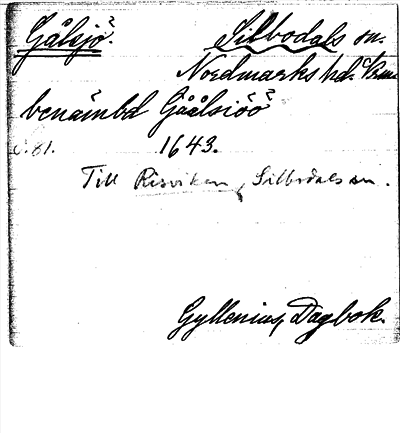 Gålsjö?. Silbodals sn.
Nordmarks hd.
benämbd Gåålsiöö?
s. 81. 1643.
Till Risviken, Silbodals sn.
Gyllenius, Dagbok.